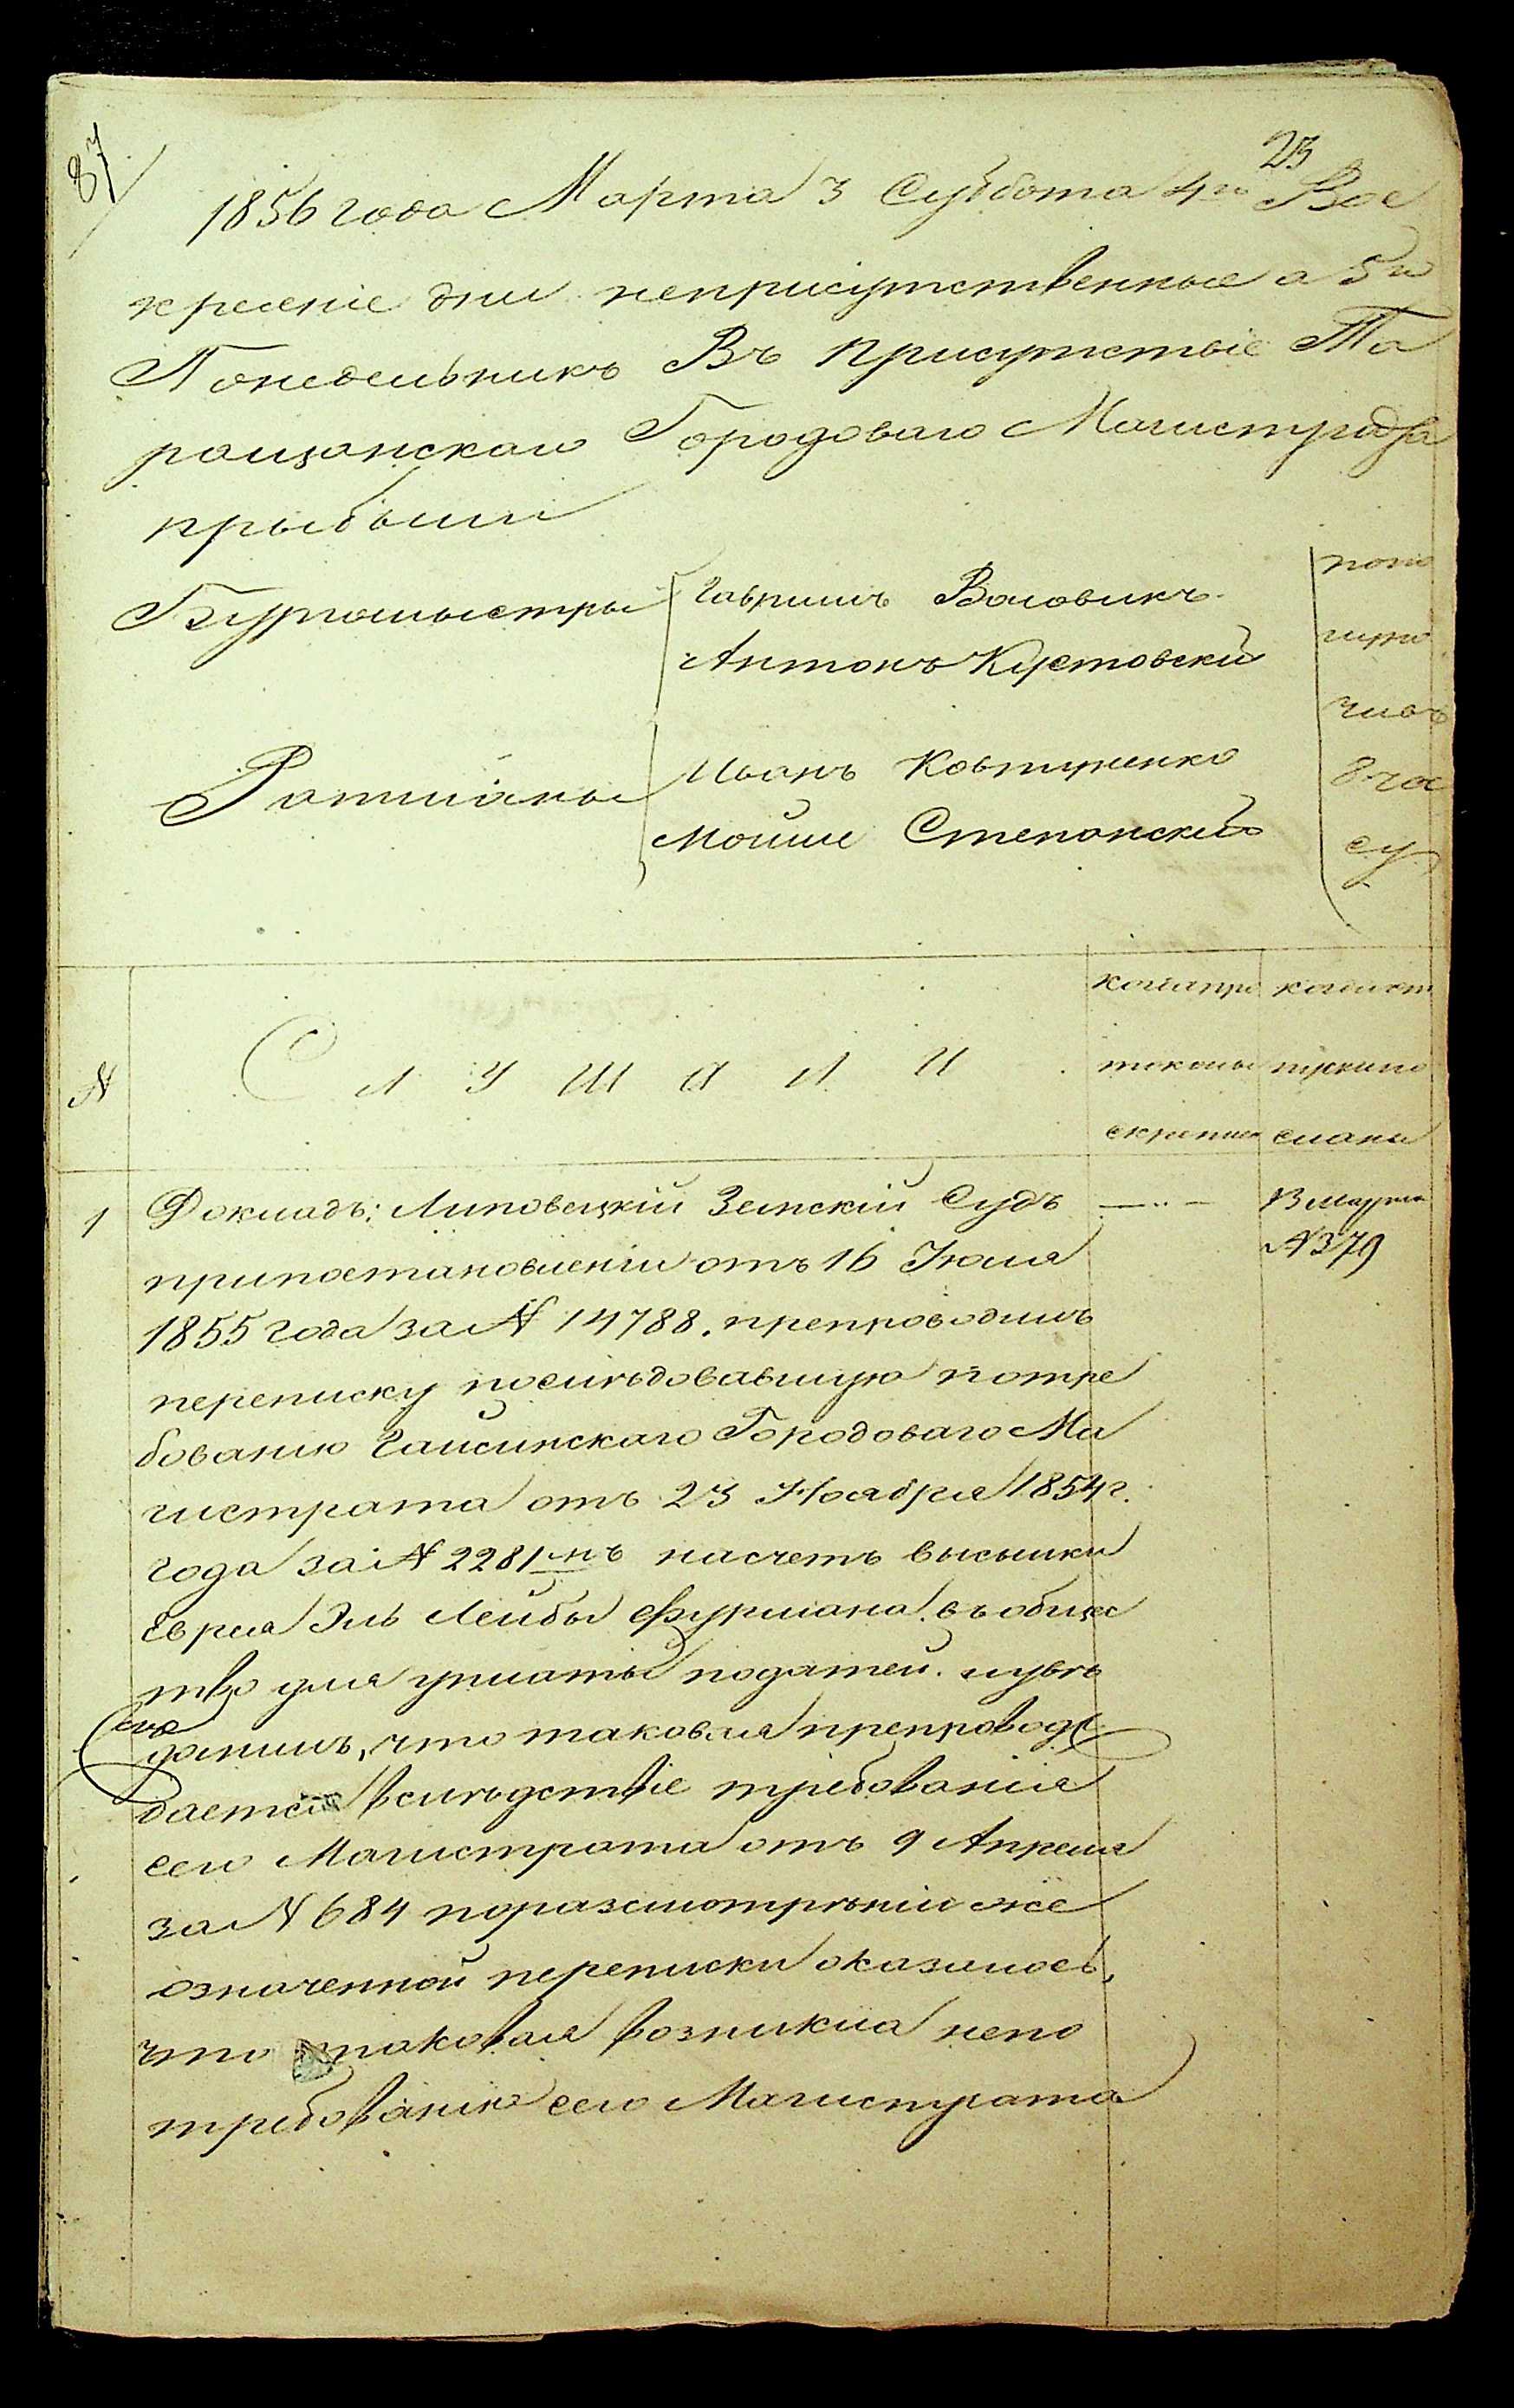 87
23
1856 года Марта 3 Суббота 4го Вос
кресеніе дни неприсутственные а 5го
Понедельникъ Въ Присутствіе Та
ращанскаго Городоваго Магистрата
прыбыли
Бургомыстры Гаврыилъ Воловикъ
Антонъ Кустовскій
Ратманы Иванъ Ковтуненко
Мошко Степанскій
попо
луно
чивъ
8 ча
су
N
СЛУШАЛИ
когда про
токолы
скреплен
когда от
пускипо
сланы
1
Докладъ: Липовецкій Земскій Судъ
припостановленіи отъ 16 Июля
1855 года за N 14788. препроводилъ
переписку последовавшую потре
бованию Гайсинскаго Городоваго Ма
гистрата отъ 23 Ноября 1854 г.
года за N 2281мъ насчетъ высылки
Еврея Эль Лейбы Фурмана въ общес
тво для уплаты податей. иувѣ
домилъ, что таковая препровож
дается вслѣдствіе требованія
сего Магистрата отъ 9 Апреля
за N 684 поразсмотрѣніи же
означенной переписки оказалось,
что таковая возникла непо
требованію сего Магистрата
13 Марта
N 379